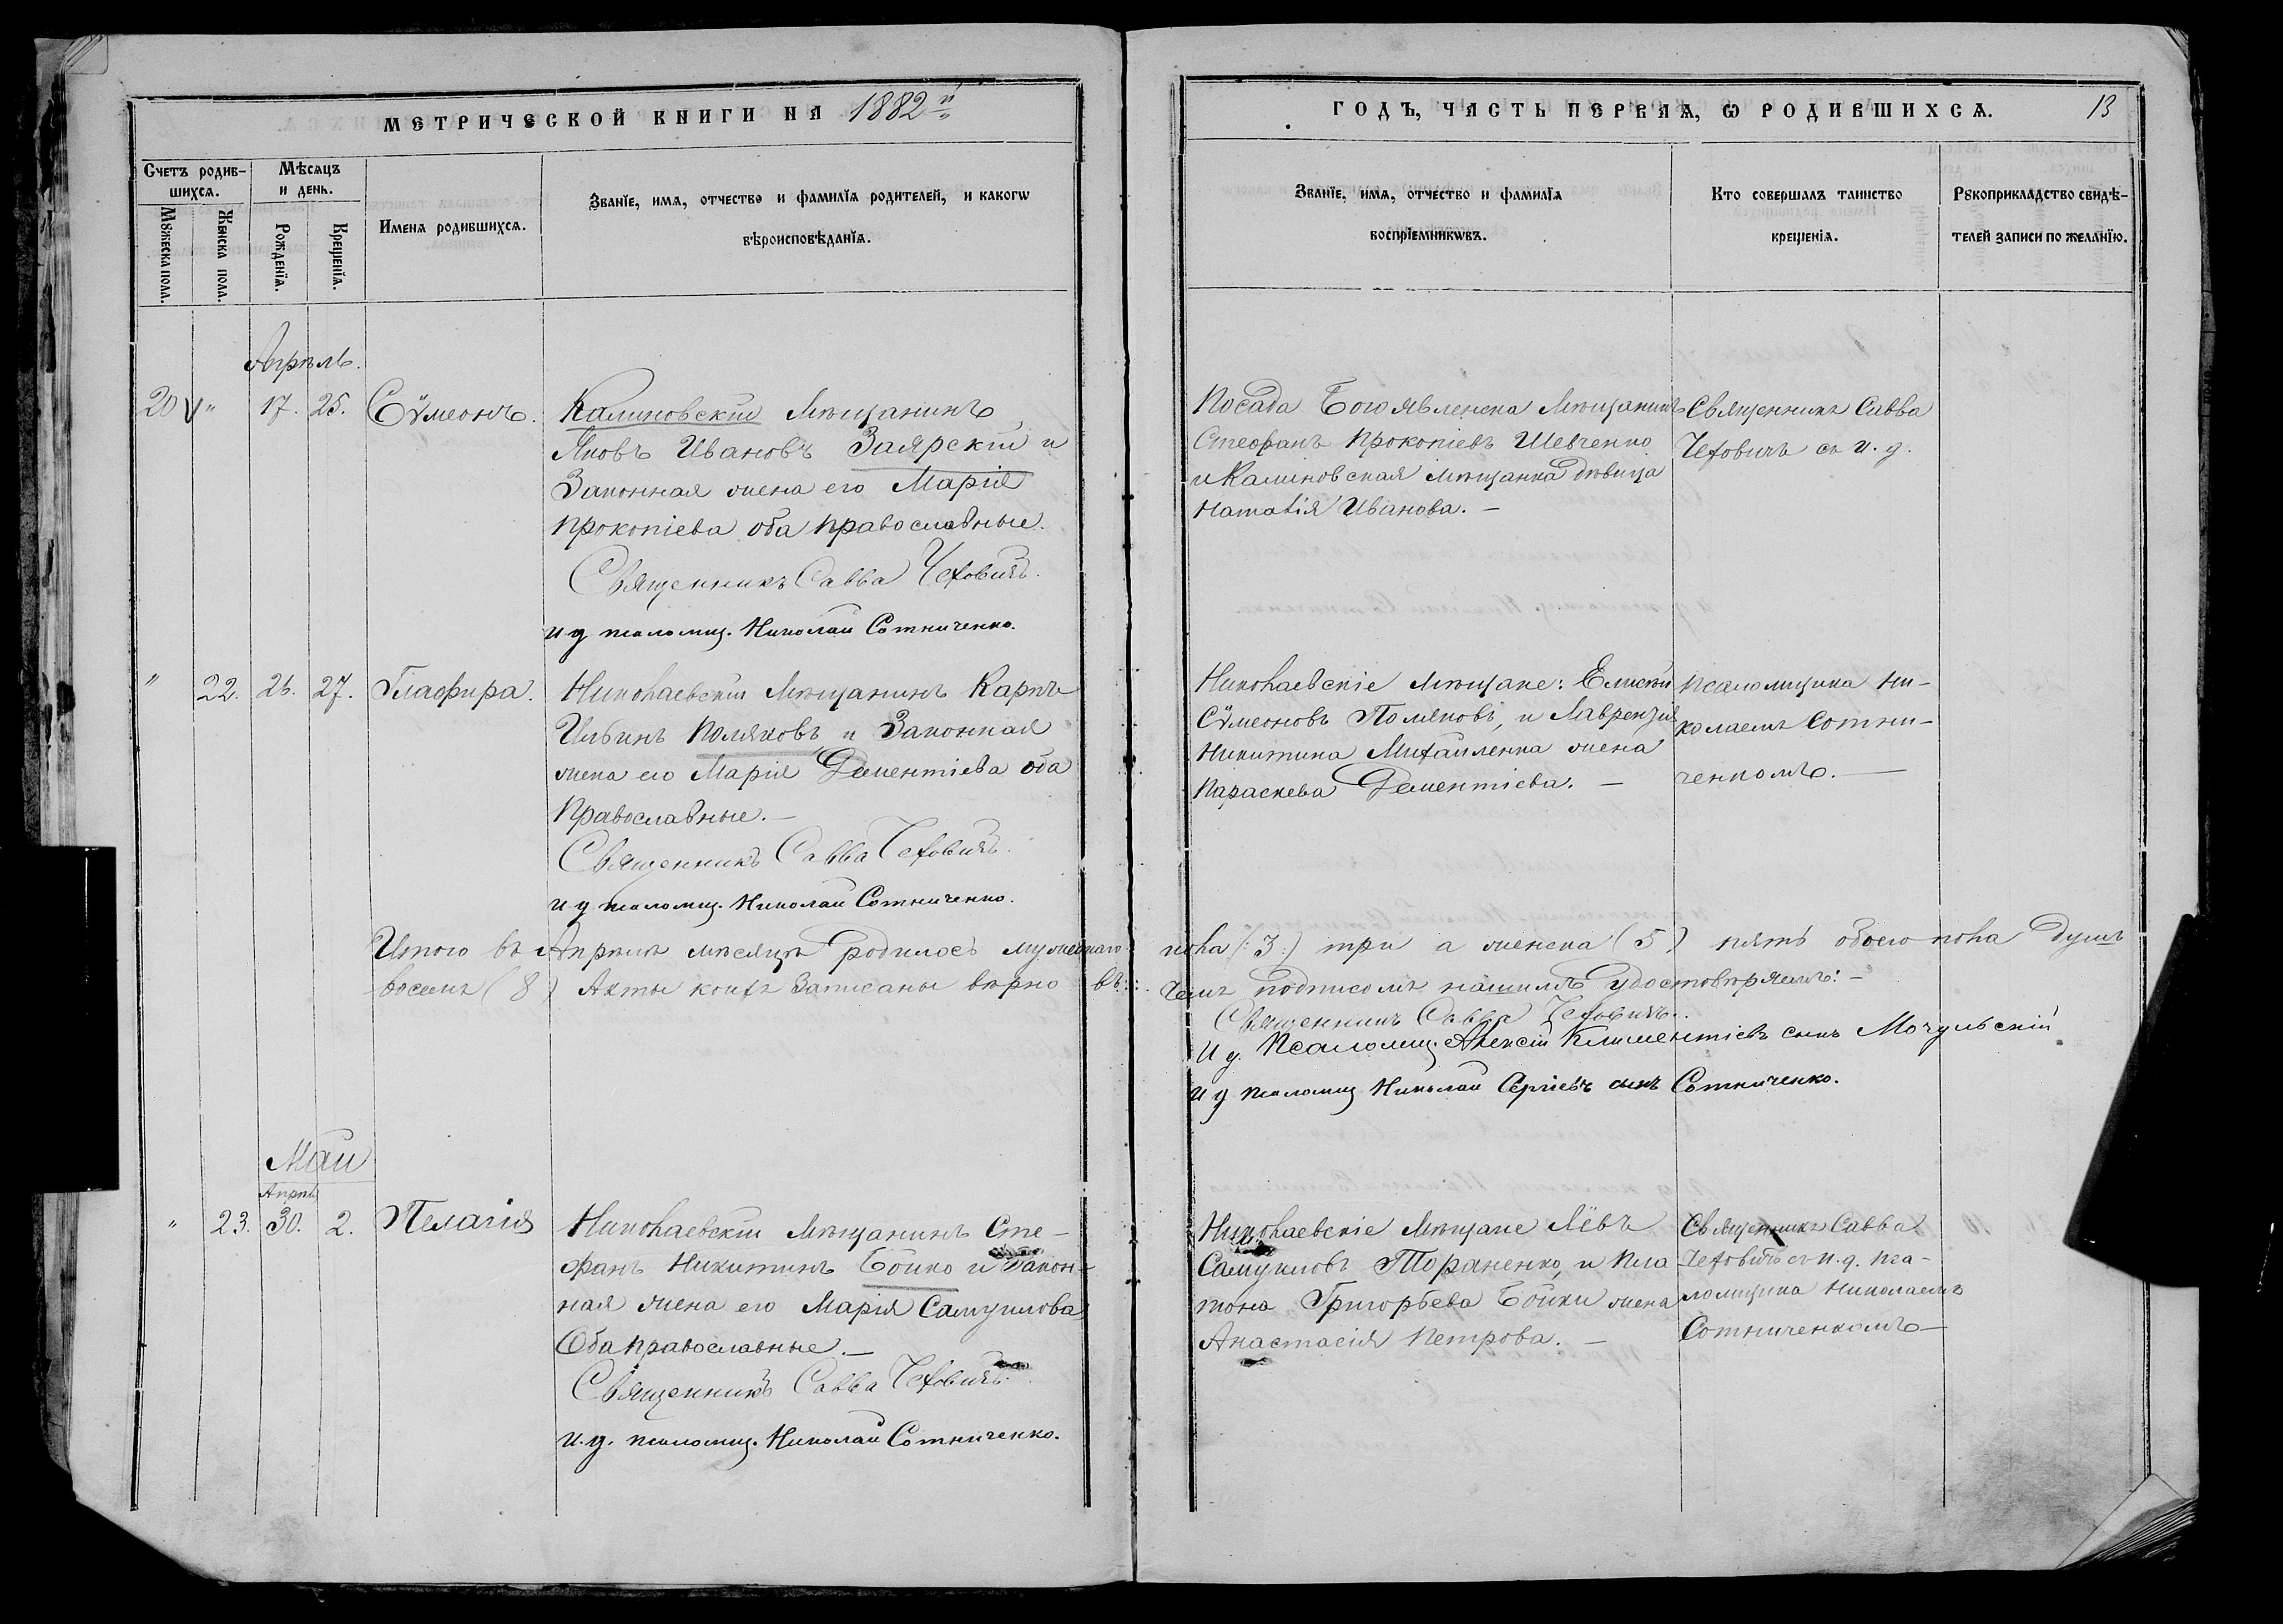 МЕТРИЧЕСКОЙ КНИГИ НА 1882й
Счетъ родив-
шихся.
Мѣсяцъ
и день.
Мꙋжеска пола.
Женска пола.
Рожденїя.
Крещенїя.
Имена родившихся.
Званїе, имя, отчество и фамилїя родителей, и какогѡ
вѣроисповѣданїя.
Апрѣль.
20 " 17. 25. Сѵмеонъ.
Калиновскій Мѣщанинъ
Яковъ Ивановъ Заярскій и
Законная жена его Марія
Прокопіева оба православные.
Священникъ Савва Чехович.
и д псаломщ. Николай Сотниченко.
" 22. 26. 27. Глафира.
Николаевскій Мѣщанинъ Карпъ
Ильинъ Поляковъ и Законная
жена его Марія Дементіева оба
Православные. —
Священникъ Савва Чеховичъ.
и д псаломщ. Николай Сотниченко.
Итого въ Апрѣлѣ мѣсяцѣ родилось мужескаго
восемь (8) Акты коихъ Записаны вѣрно въ
Май
Апрѣ
" 23. 30. 2. Пелагія
Николаевскій Мѣщанинъ Сте-
фанъ Никитинъ Бойко и Закон-
ная жена его Марія Самуилова
Оба православные. —
Священникъ Савва Чеховичъ.
и.д. псаломщ. Николай Сотниченко.
ГОДЪ, ЧАСТЬ ПЕРВАЯ, Ѡ РОДИВШИХСЯ. 13
Званїе, имя, отчество и фамилїя
воспрїемникѡвъ.
Кто совершалъ таинство
крещенїя.
Рꙋкоприкладство свидѣ-
телей записи по желанїю.
Посада Богоявленска Мѣщанинъ
Стефанъ Прокопіевъ Шевченко
и Калиновская мѣщанка дѣвица
Наталія Иванова. —
Священникъ Савва
Чеховичъ съ и. д.
Николаевскіе мѣщане: Елисей
Сѵмеоновъ Поляковъ, и Лаврентія
Никитина Михайленка жена
Параскева Дементіева. —
Псаломщика Ни-
колаемъ Сотни-
ченкомъ. —
пола (: 3 :) три а женска (5) пять обоего пола душъ
чемъ подписомъ нашимъ удостовѣряемъ: —
Священникъ Савва Чеховичъ.
И д. Псаломщ. Алексій Климентіевъ сынъ Мочульскій
и д псаломщ Николай Сергіевъ сынъ Сотниченко.
Николаевскіе мѣщане Левъ
Самуиловъ Тораненко, и Пла
тона Григорьева Бойки жена
Анастасія Петрова. —
Священникъ Савва
Чеховичъ съ и. д. пса-
ломщика Николаемъ
Сотниченкомъ —